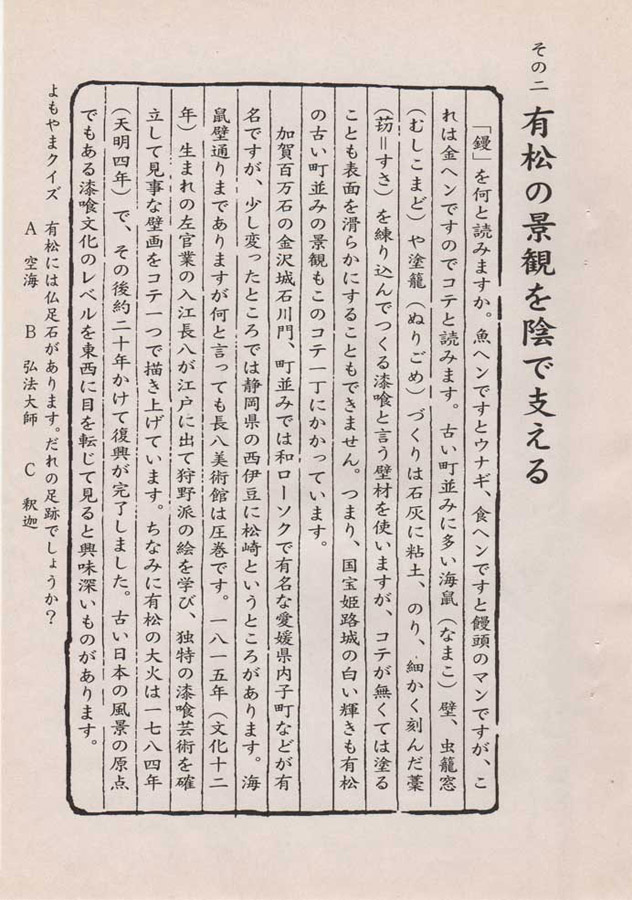 その二 有松の景観を陰で支える
「鏝」を何と読みますか。魚ヘンですとウナギ、食ヘンですと饅頭のマンですが、こ
れは金ヘンですのでコテと読みます。古い町並みに多い海鼠（なまこ）壁、虫籠窓
（むしこまど）や塗籠（ぬりごめ）づくりは石灰に粘土、のり、細かく刻んだ藁
（苆＝すさ）を練り込んでつくる漆喰と言う壁材を使いますが、コテが無くては塗る
ことも表面を滑らかにすることもできません。つまり、国宝姫路城の白い輝きも有松
の古い町並みの景観もこのコテ一丁にかかっています。
加賀百万石の金沢城石川門、町並みでは和ローソクで有名な愛媛県内子町などが有
名ですが、少し変ったところでは静岡県の西伊豆に松崎というところがあります。海
鼠壁通りまでありますが何と言っても長八美術館は圧巻です。一八一五年（文化十二
年）生まれの左官業の入江長八が江戸に出て狩野派の絵を学び、独特の漆喰芸術を確
立して見事な壁画をコテ一つで描き上げています。ちなみに有松の大火は一七八四年
（天明四年）で、その後約二十年かけて復興が完了しました。古い日本の風景の原点
でもある漆喰文化のレベルを東西に目を転じて見ると興味深いものがあります。
よもやまクイズ 有松には仏足石があります。だれの足跡でしょうか？
A 空海 B 弘法大師 C 釈迦